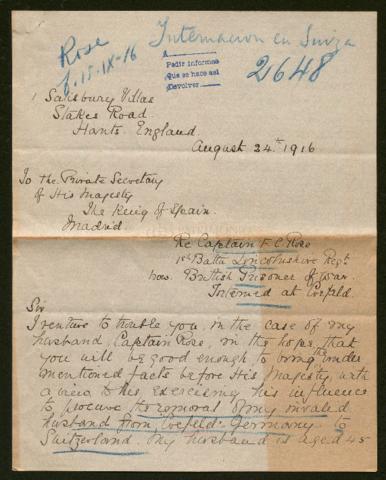 Rose
f. 15-IX-16
Internacion en Suiza
2648
A
Pedir informes
Que se hace asi
Devolver
1 Salisbury Villas
Stakes Road
Hants. England.
August 24th 1916
To the Private Secretary
of His Majesty
The King of Spain.
Madrid.
Re Captain F C Rose
1st Battn Lincolnshire Regt
now British Prisoner of War
Interned at Crefeld.
Sir
I venture to trouble you, in the case of my
husband, Captain Rose, in the hope that
you will be good enough to bring the under
mentioned facts before His Majesty, with
a view to his exercising his influence
to procure the removal of my invalid
husband from Crefeld Germany to
Switzerland. My husband is aged 45